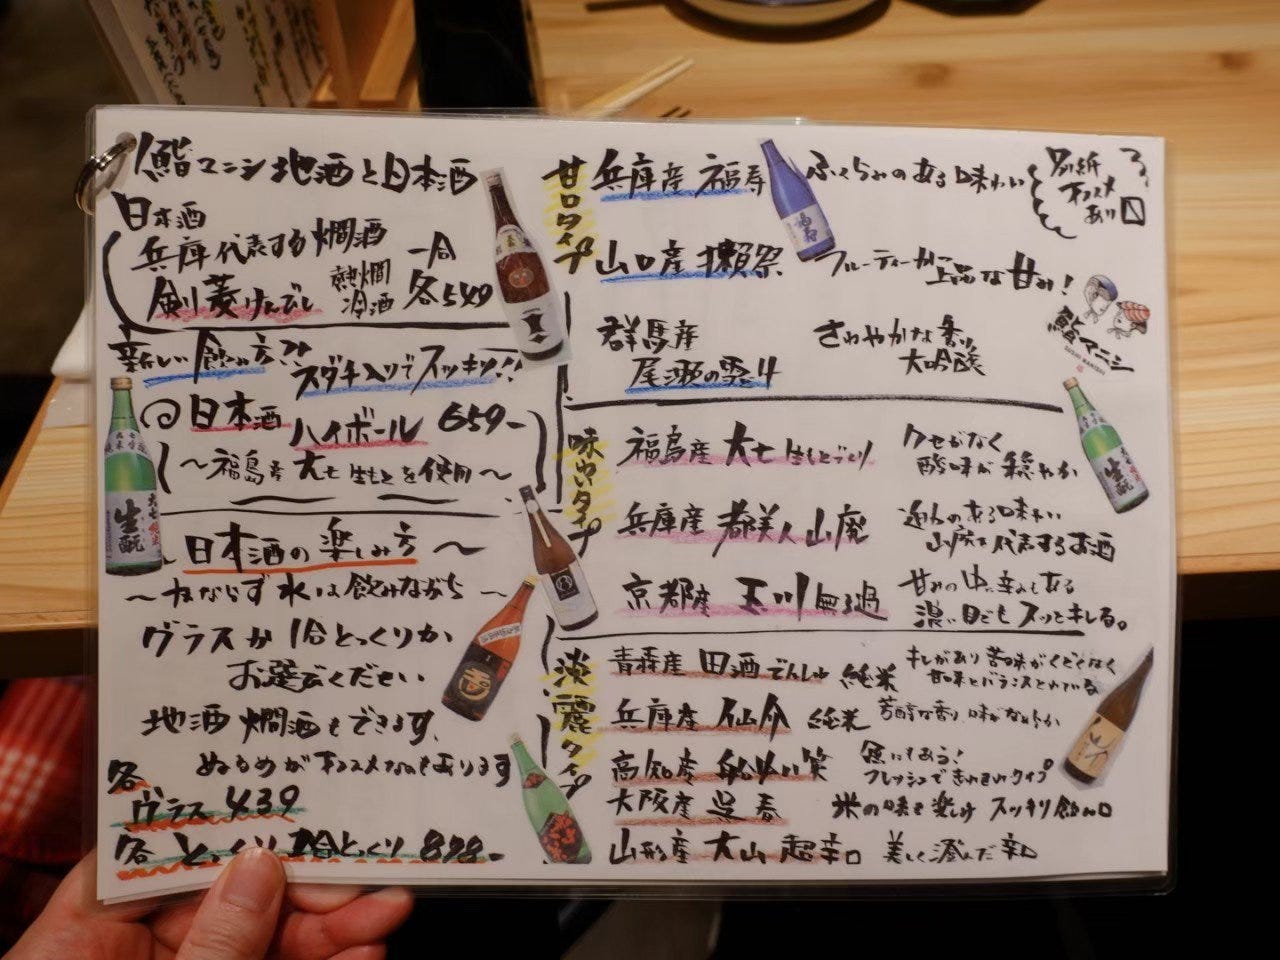 鮨マニシ 地酒と日本酒
日本酒
兵庫代表する燗酒
剣菱けんびし
熱燗
冷酒
一合
各549
新しい飲み方
スダチ入りでスッキリ!!
日本酒
ハイボール 659-
~福島産 大七 生もとを使用~
日本酒の楽しみ方~
~かならず水は飲みながら~
グラスか1合とっくりか
お選びください
地酒燗酒もできます、
ぬるめがオススメなのもあります
各グラス 439
各とっくり 1合とっくり 898-
甘口タイプ
兵庫産 福寿
ふくらみのある味わい
山口産 獺祭
フルーティーかつ
上品な甘み!
群馬産
尾瀬の雪どけ
さわやかな香り
大吟醸
別紙
オススメ
あり
鮨マニシ
SUSHI MANISHI
味吟タイプ
福島産 大七 生もとづくり
クセがなく
酸味が穏やか
兵庫産 都美人 山廃
味わい
山廃を代表するお酒
京都産 玉川 無ろ過
甘みの中に辛みもある
濃い目でもスッとキレる。
淡麗タイプ
青森産 田酒でんしゅ 純米
キレがあり苦味がくどくなく
甘味とバランスとれている
兵庫産 仙介 純米
芳醇な香り、味がなめらか
高知産
魚にもあう!
フレッシュできれいなタイプ
大阪産 呉春
米の味を楽しめ スッキリ飲み口
山形産 大山 超辛口
美しく澄んだ辛口